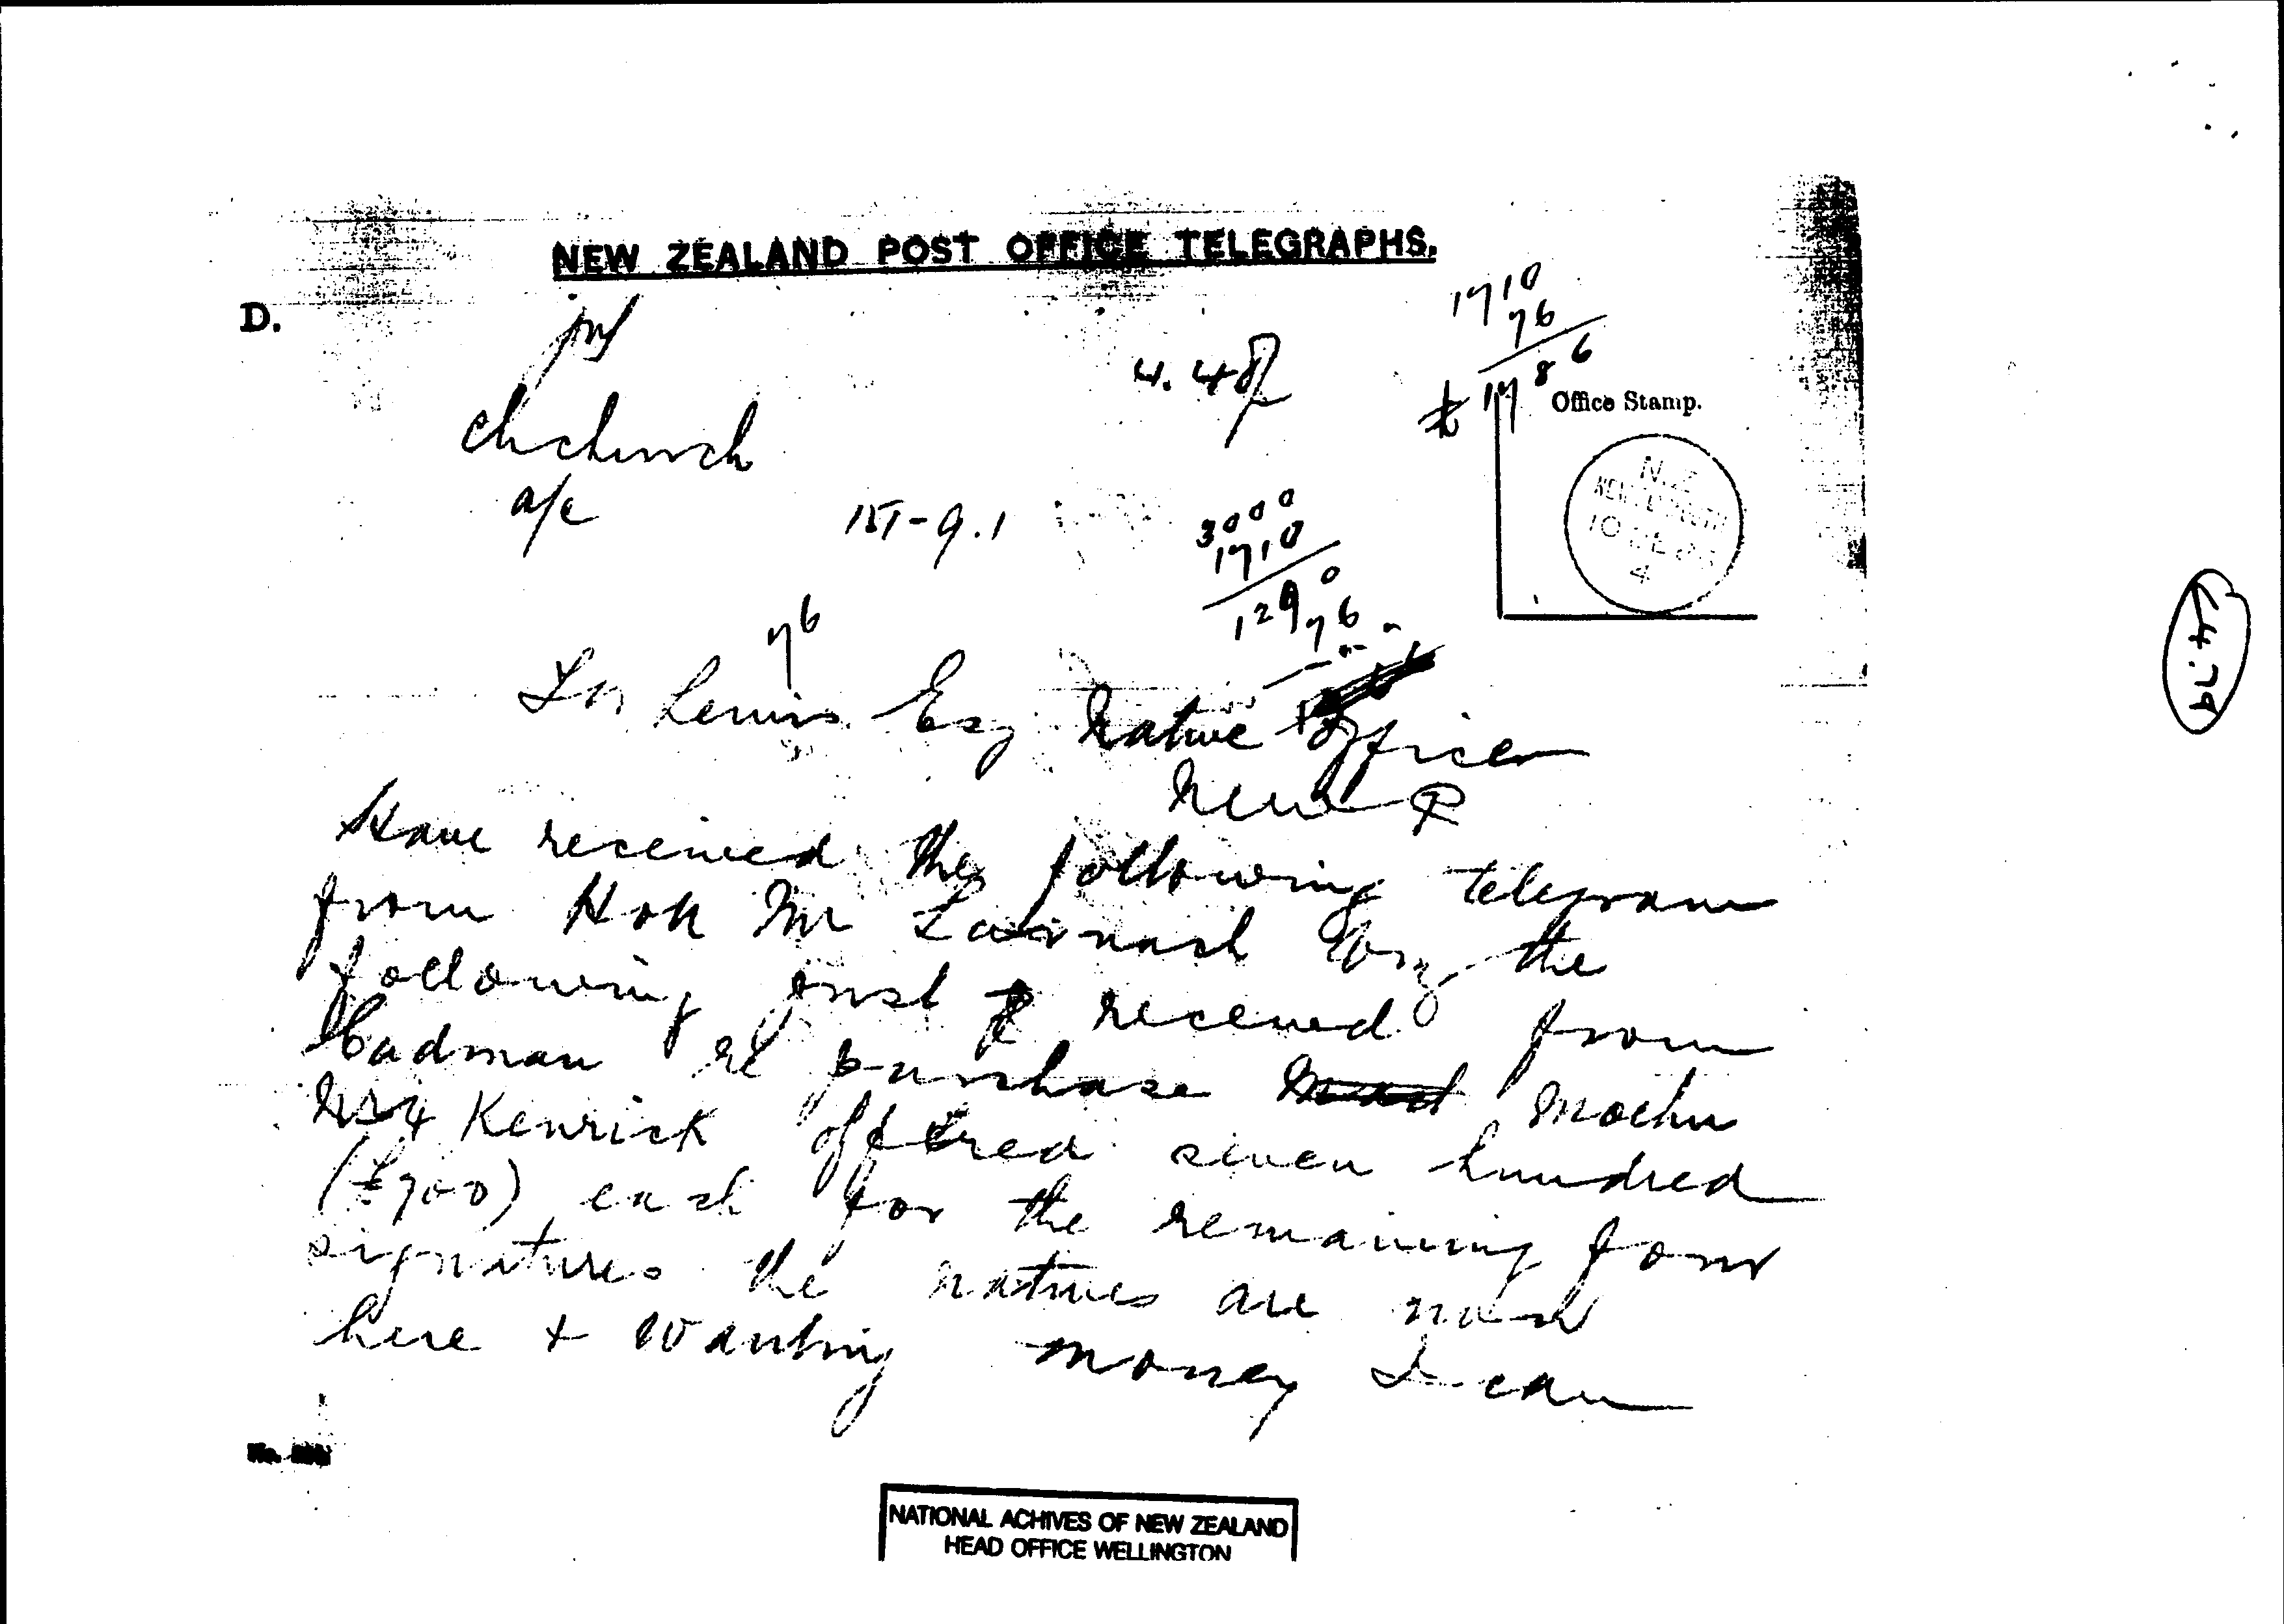 NEW ZEALAND POST OFFICE TELEGRAPHS.
D.
1710
76
£ 1786
4.48p
Chchurch
a/c
151-9.1
3000
1710
1290
76
Office Stamp.
N.Z
10 DE
4
76
Lewis Esq Native Office
New P
Have received the following telegram
from Hon Mr Larnach the
following just received from
Cadman re purchase Moehu
Kenrick offered seven hundred
(£700) each for the remaining four
signatures the natives are now
here + wanting money I can
No.
NATIONAL ACHIVES OF NEW ZEALAND
HEAD OFFICE WELLINGTON